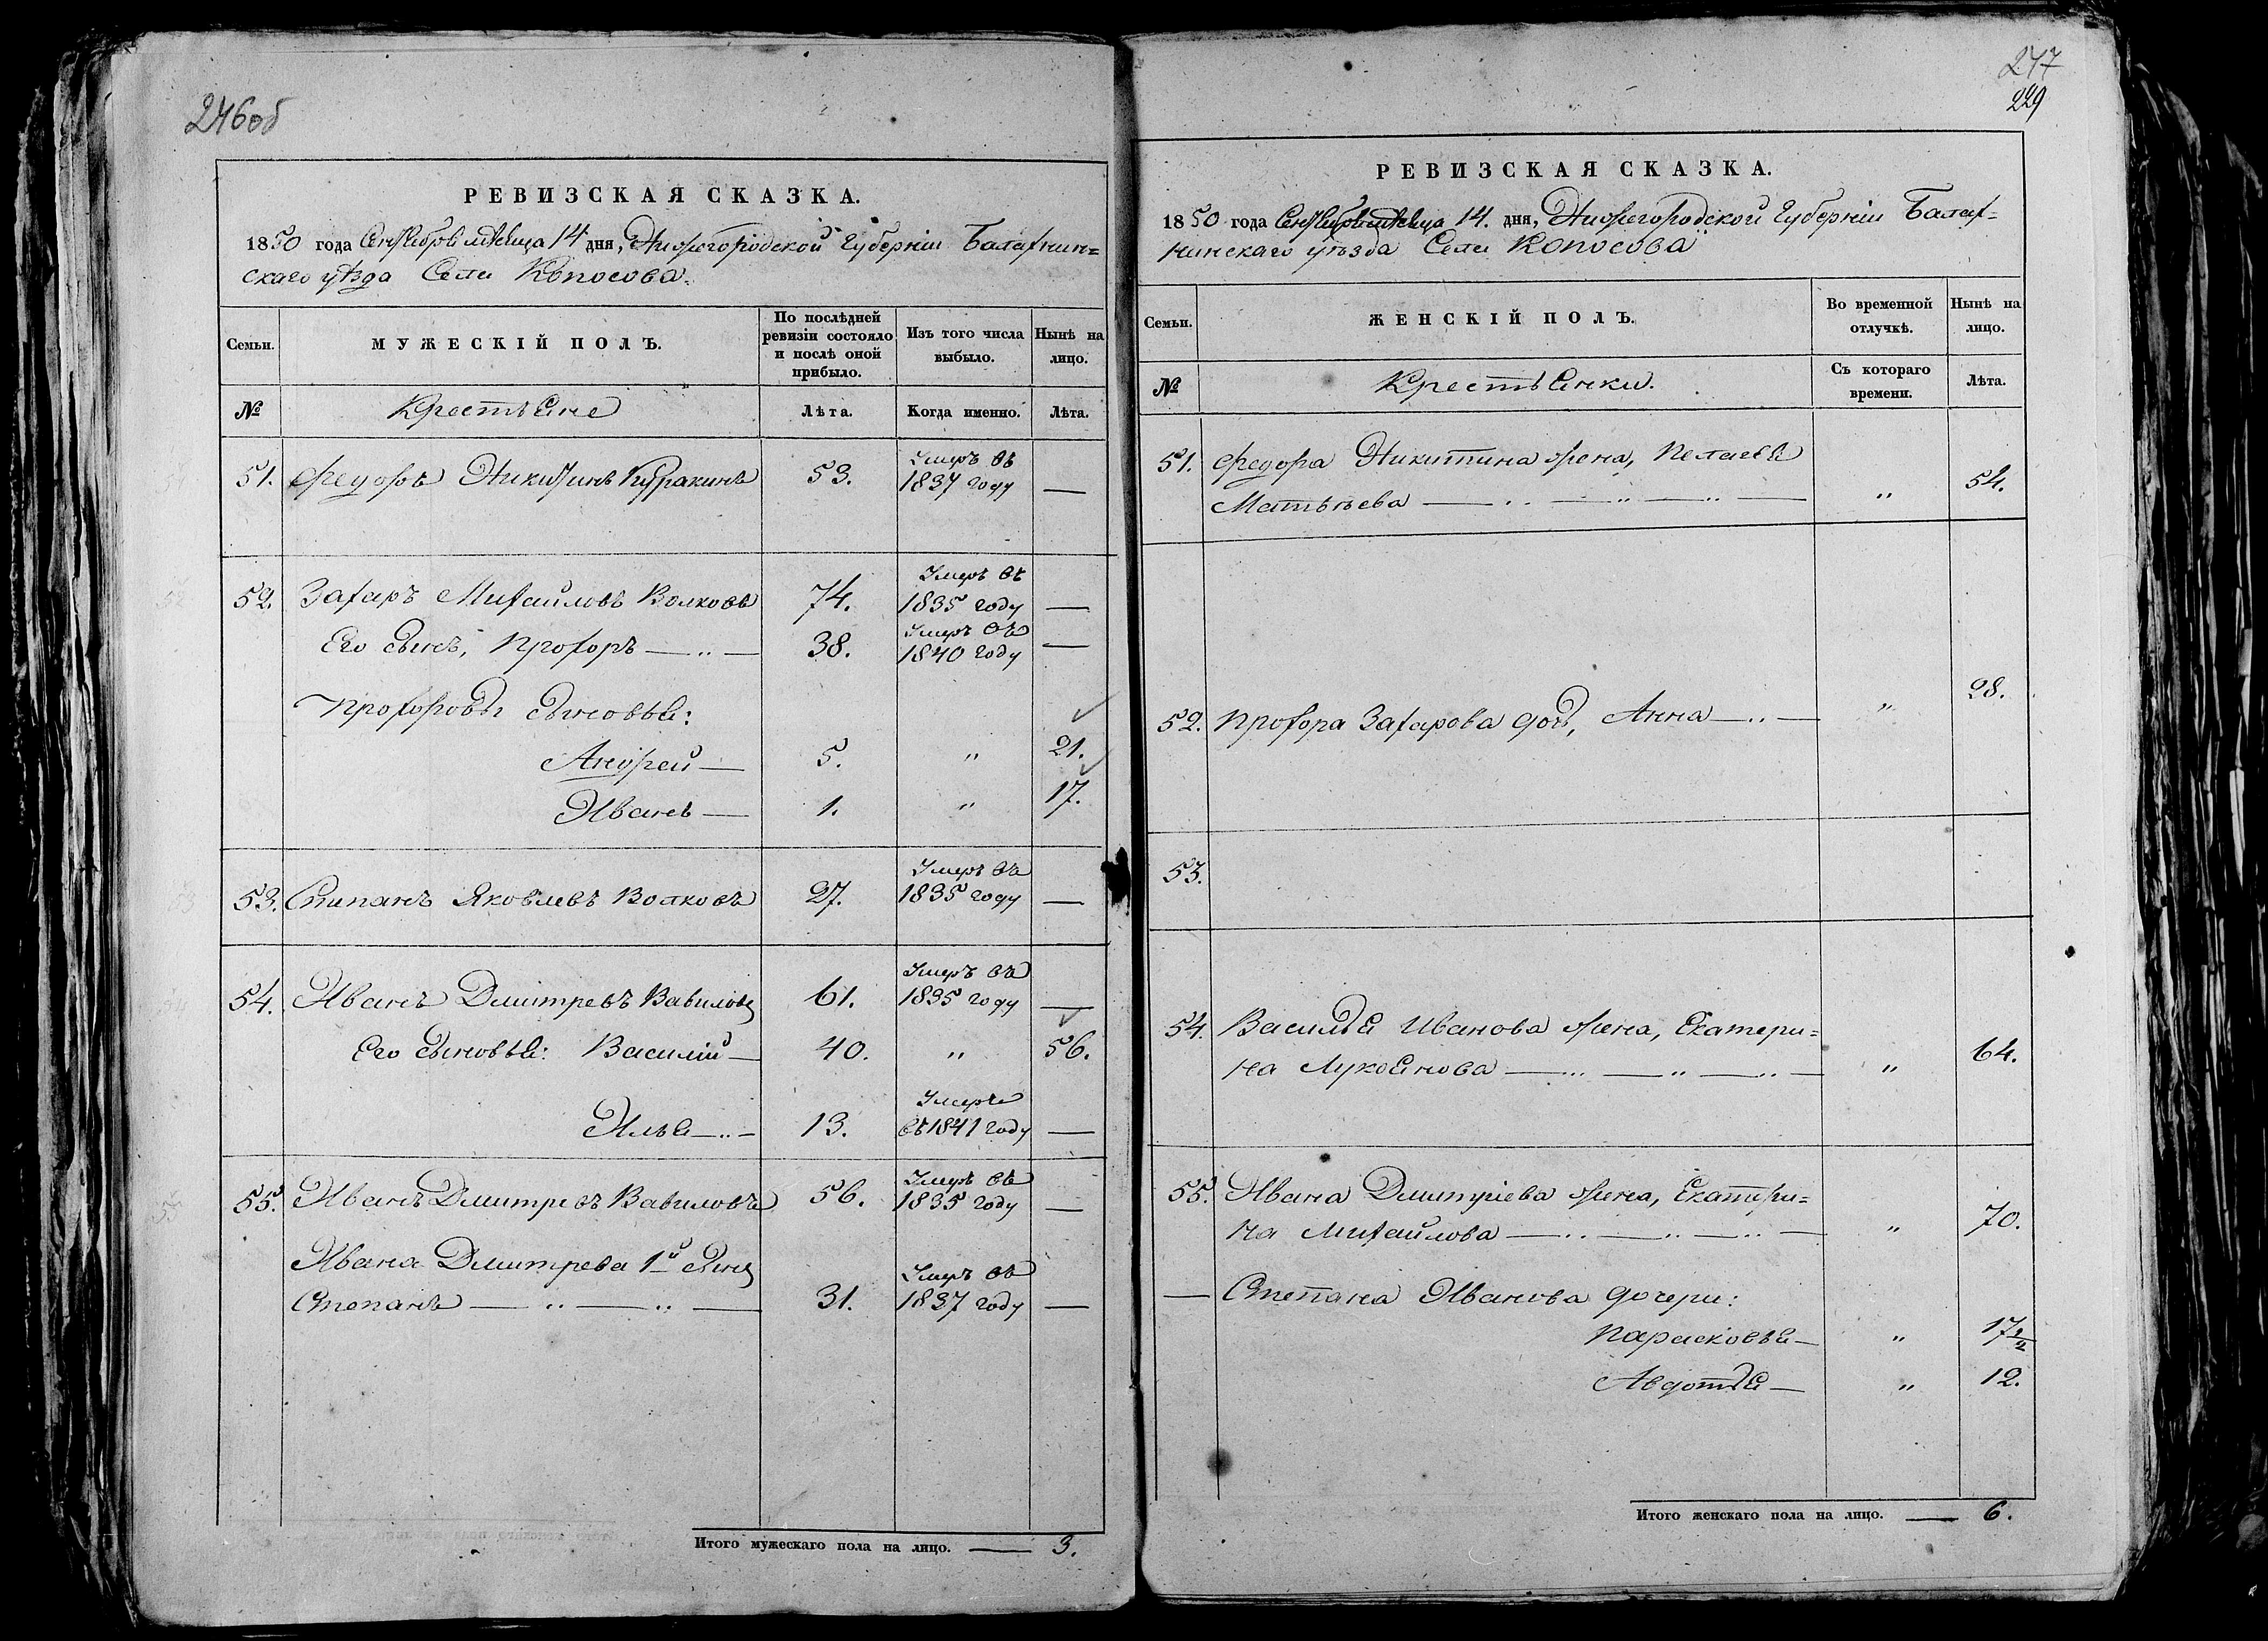 246об
РЕВИЗСКАЯ СКАЗКА.
1850 года Сентября месяца 14 дня, Нижегородской Губерніи Балахнин=
скаго уѣзда Села Копосова.
Семьи.
МУЖЕСКІЙ ПОЛЪ.
По послѣдней ревизіи состояло и послѣ оной прибыло.
Изъ того числа выбыло.
Нынѣ на лицо.
№
Крестьяне
Лѣта.
Когда именно.
Лѣта.
51. Федоръ Никитинъ Куракинъ 53. Умеръ въ 1837 году —
52. Захаръ Михайловъ Волковъ 74. Умеръ въ 1835 году —
Его сынъ, Прохоръ — „ — 38. Умеръ въ 1840 году —
Прохоровы сыновья:
Андрей — 5. „ 21.
Иванъ — 1. „ 17.
53. Степанъ Яковлевъ Волковъ 27. Умеръ въ 1835 году —
54. Иванъ Дмитревъ Вавиловъ 61. Умеръ въ 1835 году —
Его сыновья: Василій — 40. „ 56.
Илья — „ — 13. Умеръ въ 1841 году —
55. Иванъ Дмитревъ Вавиловъ 56. Умеръ въ 1835 году —
Ивана Дмитрева 1й сынъ
Степанъ — „ — „ — 31. Умеръ въ 1837 году —
Итого мужескаго пола на лицо. — 3.
247
229
РЕВИЗСКАЯ СКАЗКА.
1850 года Сентября месяца 14. дня, Нижегородской Губерніи Балах=
нинскаго уѣзда Села Копосова
Семьи.
ЖЕНСКІЙ ПОЛЪ.
Во временной отлучкѣ.
Нынѣ на лицо.
№
Крестьянки.
Съ котораго времени.
Лѣта.
51. Федора Никитина жена, Пелагея
Матвѣева — „ — „ — „ — „ 54.
52. Прохора Захарова дочь, Анна — „ — „ 28.
53.
54. Василья Иванова жена, Екатери=
на Лукоянова — „ — „ — „ — „ 64.
55. Ивана Дмитріева жена, Екатери=
на Михайлова — „ — „ — „ — „ 70.
— Степана Иванова дочери:
Парасковья — „ 17 1/2
Авдотья — „ 12.
Итого женскаго пола на лицо. — 6.